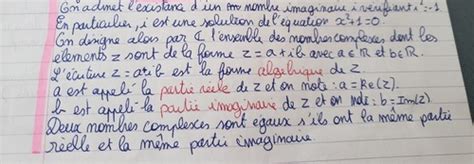 On admet l'existence d'un nombre imaginaire i vérifiant i² = -1
En particulier, i est une solution de l'équation x²+1=0.
On désigne alors par ℂ l'ensemble des nombres complexes dont les
élements z sont de la forme z = a+ib avec a∈ℝ et b∈ℝ.
L'écriture z = a+ib est la forme algébrique de z.
a est appelé la partie réelle de z et on note : a = Re(z).
b est appelé la partie imaginaire de z et on note : b = Im(z).
Deux nombres complexes sont égaux s'ils ont la même partie
réelle et la même partie imaginaire.